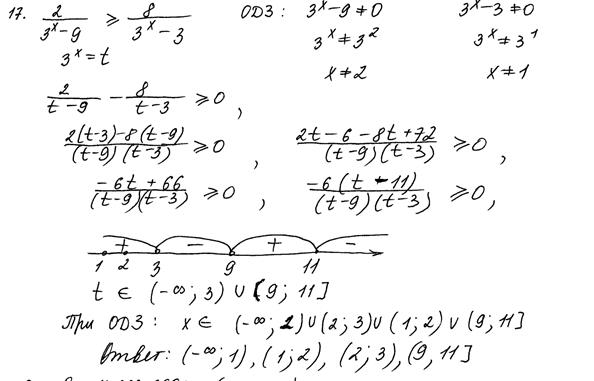 17. 2/(3^x-9) ⩾ 8/(3^x-3) ОДЗ: 3^x-9≠0 3^x-3≠0
3^x=t 3^x≠3^2 3^x≠3^1
x≠2 x≠1
2/(t-9) - 8/(t-3) ⩾0,
(2(t-3)-8(t-9))/((t-9)(t-3)) ⩾0, (2t-6-8t+72)/((t-9)(t-3)) ⩾0,
(-6t+66)/((t-9)(t-3)) ⩾0, (-6(t-11))/((t-9)(t-3)) ⩾0,
+ - + -
1 2 3 9 11
t ∈ (-∞; 3) ∪ (9; 11]
При ОДЗ: x ∈ (-∞; 2)∪(2; 3)∪(1; 2)∪(9; 11]
Ответ: (-∞; 1), (1; 2), (2; 3), (9, 11]